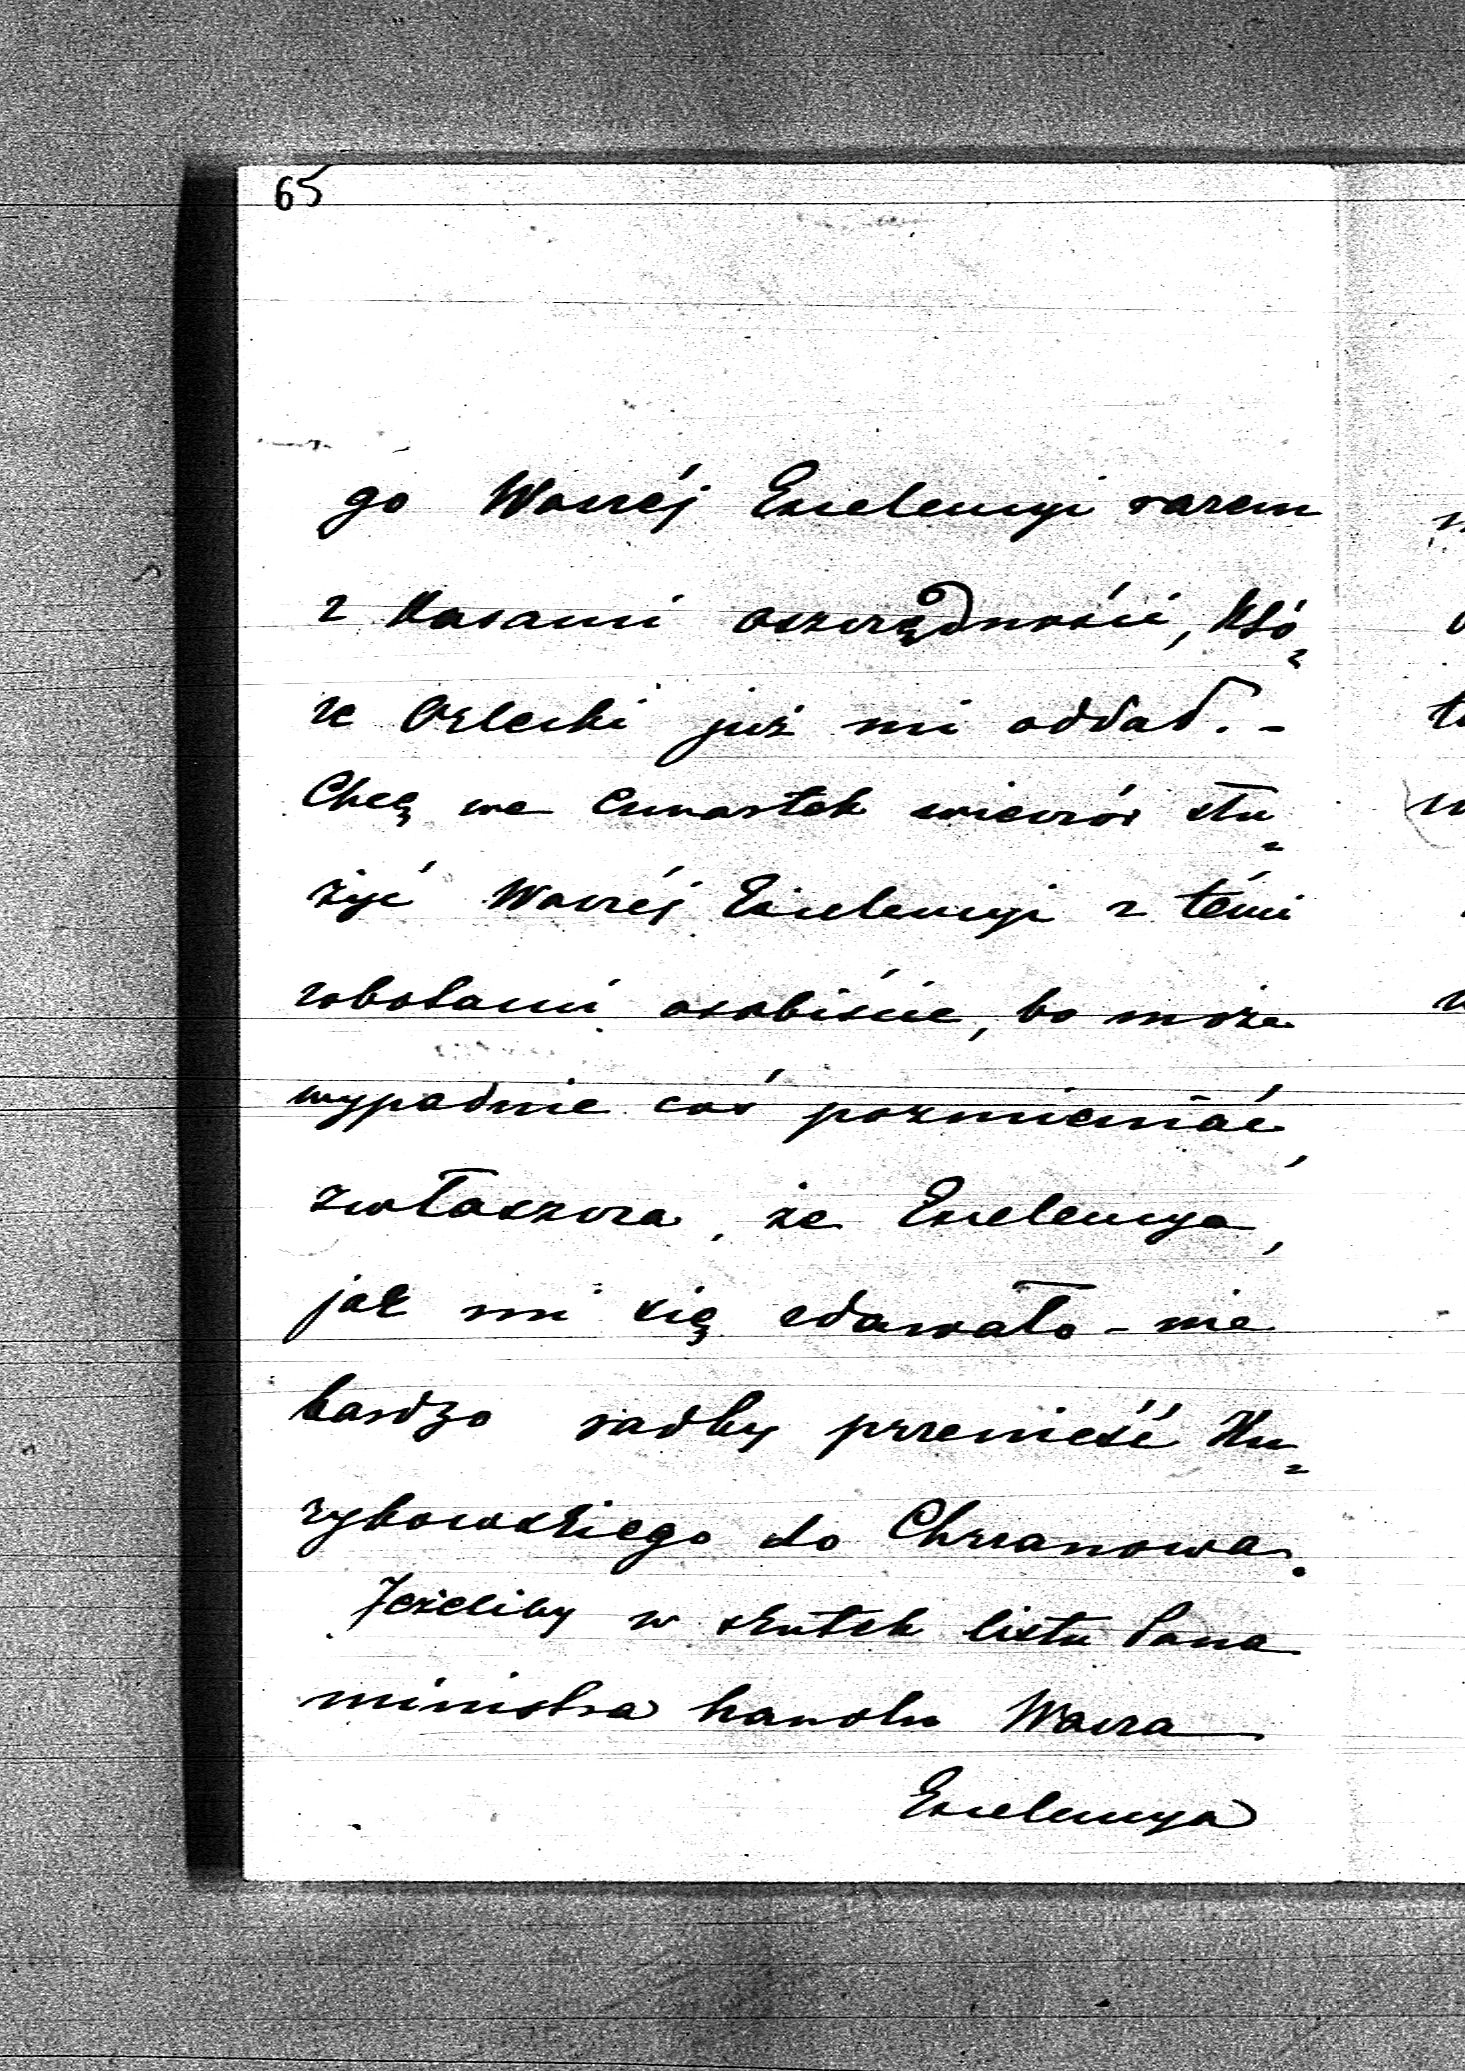 65
go Waszéj Excelencyi razem
z Kasami oszczędności, któ-
re Orlecki już mi oddał. -
Chcę we czwartek wieczór słu-
żyć Waszéj Excelencyi z témi
robotami osobiście, bo może
wypadnie coś pozmieniać,
zwłaszcza, że Excelencya,
jak mi się zdawało - nie
bardzo radby przenieść Ku-
rykowskiego do Chrzanowa.
Jeżeliby w skutek listu Pana
ministra handlu Wasza
Excelencya